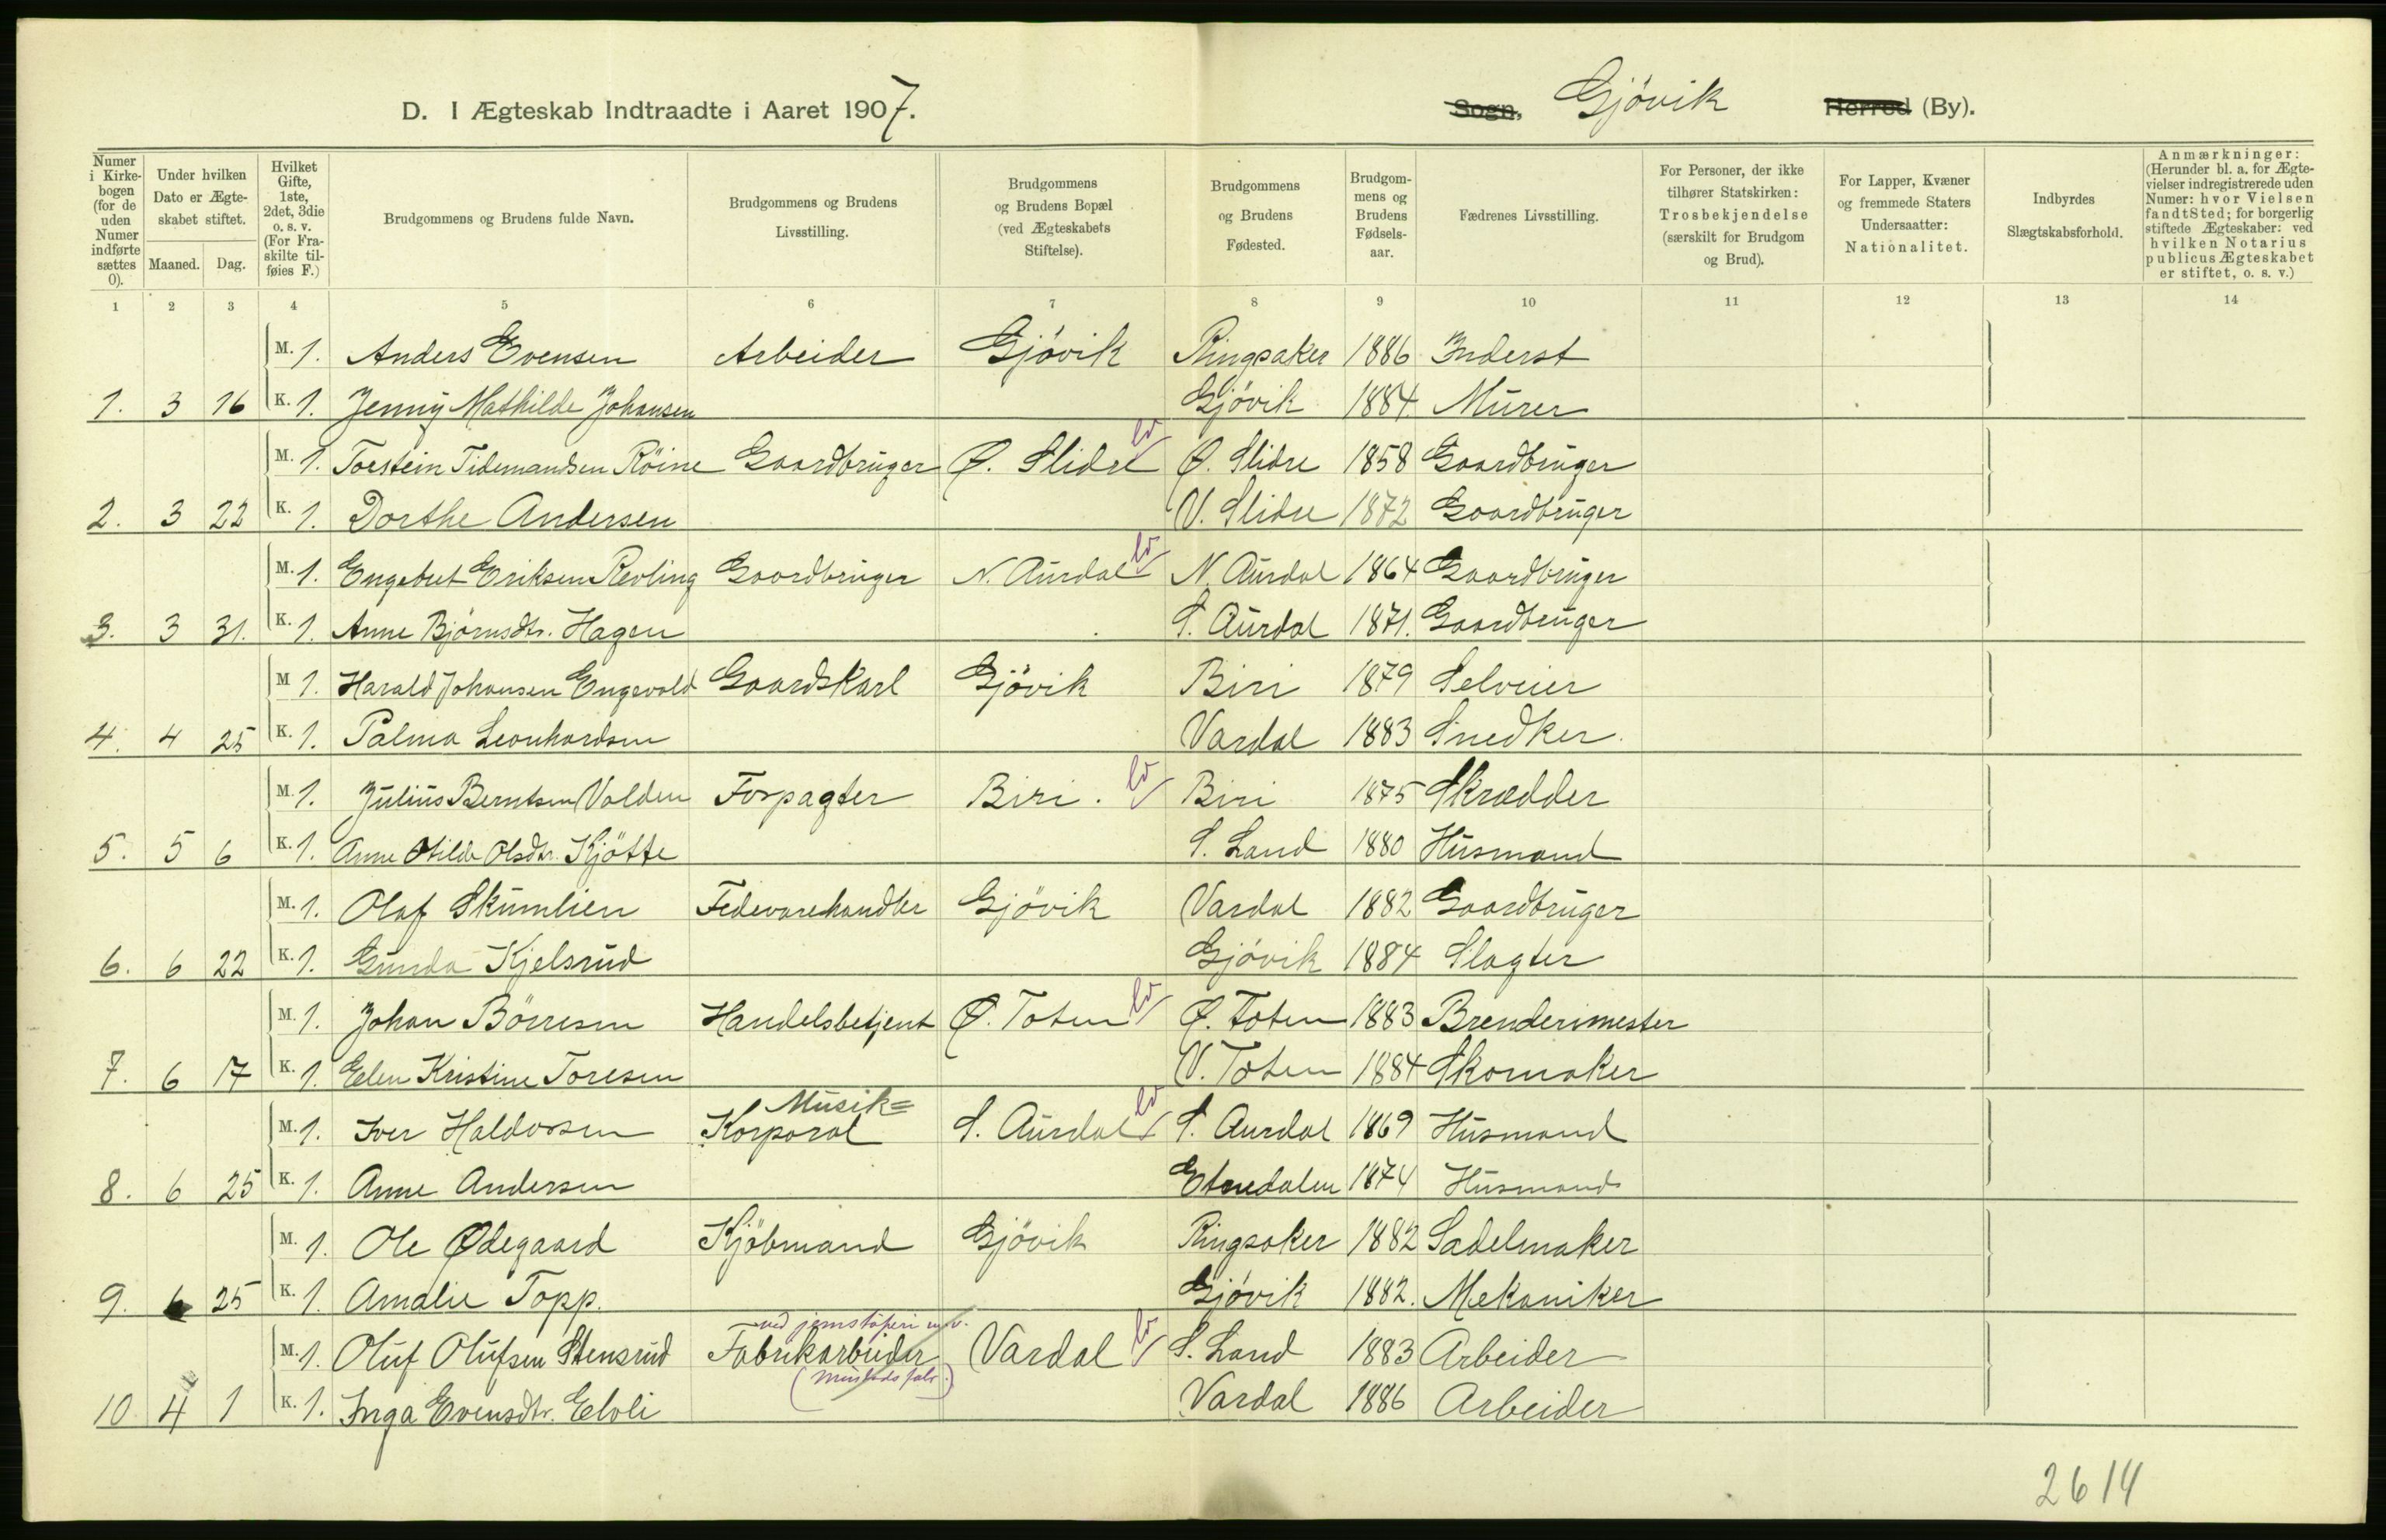 D. I Ægteskab Indtraadte i Aaret 1907.
Sogn, Gjövik Herred (By).
Numer i Kirke-bogen (for de uden Numer indførte sættes 0).
Under hvilken Dato er Ægte-skabet stiftet.
Maaned. Dag.
Hvilket Gifte, 1ste, 2det, 3die o. s. v. (For Fra-skilte til-føies F.)
Brudgommens og Brudens fulde Navn.
Brudgommens og Brudens Livsstilling.
Brudgommens og Brudens Bopæl (ved Ægteskabets Stiftelse).
Brudgommens og Brudens Fødested.
Brudgom-mens og Brudens Fødsels-aar.
Fædrenes Livsstilling.
For Personer, der ikke tilhører Statskirken: Trosbekjendelse (særskilt for Brudgom og Brud).
For Lapper, Kvæner og fremmede Staters Undersaatter: Nationalitet.
Indbyrdes Slægtskabsforhold.
Anmærkninger: (Herunder bl. a. for Ægte-vielser indregistrerede uden Numer: hvor Vielsen fandt Sted; for borgerlig stiftede Ægteskaber: ved hvilken Notarius publicus Ægteskabet er stiftet, o. s. v.)
1 2 3 4 5 6 7 8 9 10 11 12 13 14
M. 1. Anders Evensen Arbeider Gjövik Ringsaker 1886 Inderst
1. 3 16 K. 1. Jenny Mathilde Johansen Gjövik 1884 Murer
M. 1. Torstein Tidemandsen Röine Gaardbruger Ø. Slidre Ø. Slidre 1858 Gaardbruger
2. 3 22 K. 1. Dorthe Andersen V. Slidre 1872 Gaardbruger
M. 1. Engebret Eriksen Revling Gaardbruger N. Aurdal N. Aurdal 1864 Gaardbruger
3. 3 31. K. 1. Anne Björnsdtr. Hagen S. Aurdal 1871. Gaardbruger
M 1. Harald Johansen Engevold Gaardskarl Gjövik Biri 1879 Selveier
4. 4 25 K. 1. Palma Leonhardsen Vardal 1883 Snedker.
M. 1. Julius Berntsen Volden Forpagter Biri. Biri 1875 Skrædder
5. 5 6 K. 1. Anne Otilde Olsdtr. Kjötte S. Land 1880 Husmand
M. 1. Olaf Skumlien Fedevarehandler Gjövik Vardal 1882 Gaardbruger
6. 6 22 K. 1. Gunda Kjelsrud Gjövik 1884 Slagter
M. 1. Johan Börresen Handelsbetjent Ø. Toten Ø. Toten 1883 Brenderimester
7. 6 17 K. 1. Elen Kristine Toresen V. Toten 1884 Skomaker
Musik=
M. 1. Iver Haldorsen Korporal S. Aurdal S. Aurdal 1869 Husmand
8. 6 25 K. 1. Anne Andersen Etnedalen 1874 Husmand
M. 1. Ole Ødegaard Kjöbmand Gjövik Ringsaker 1882 Sadelmaker
9. 6 25 K. 1. Amalie Topp. Gjövik 1882. Mekaniker
ved jernstöperi
M. 1. Oluf Olufsen Stensrud Fabrikarbeider Vardal S. Land 1883 Arbeider
10 4 1 K. 1. Inga Evensdtr. Elvli Vardal 1886 Arbeider
2614